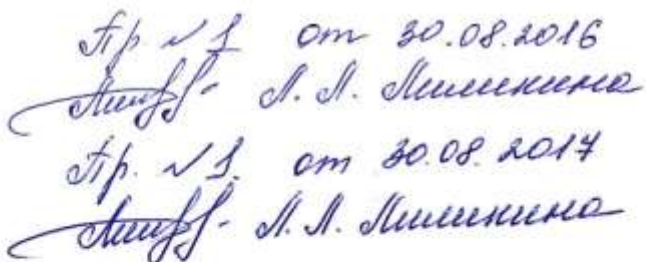 Пр. №1 от 30.08.2016
Л. Л. Миликина
Пр. №1. от 30.08.2017
Л. Л. Миликина